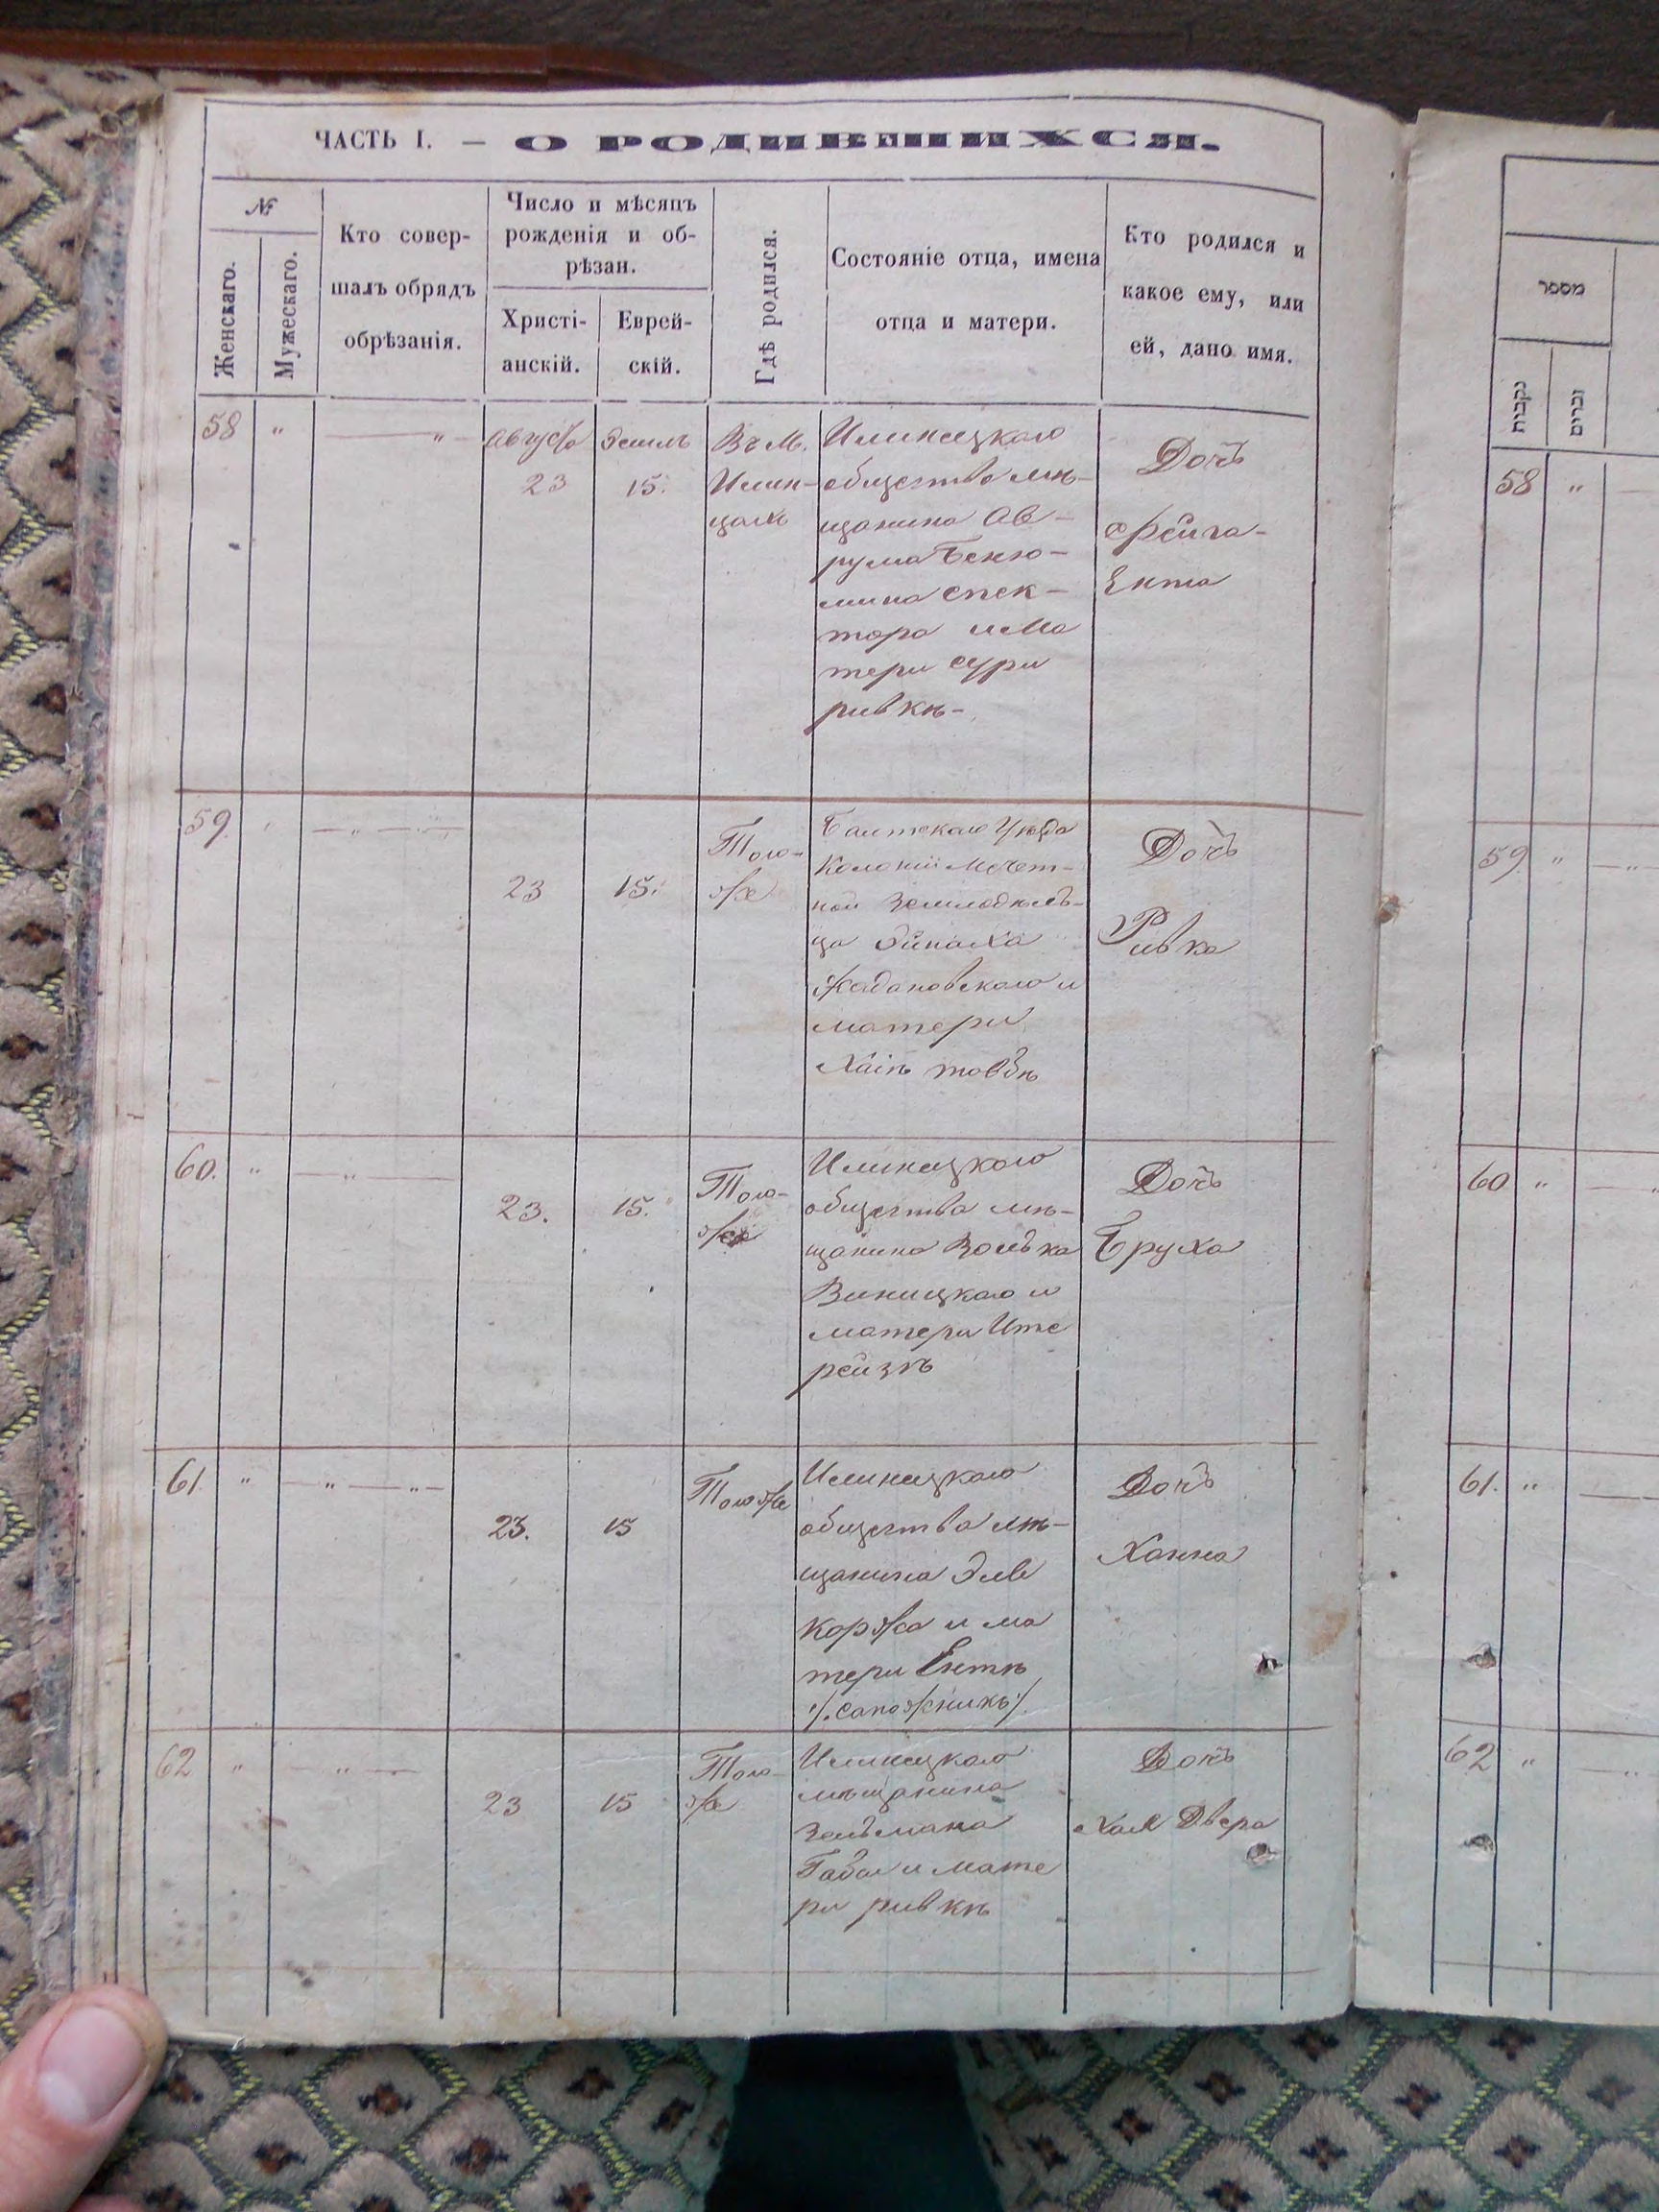 ЧАСТЬ I. — О РОДИВШИХСЯ.
№
Женскаго.
Мужескаго.
Кто совер-
шалъ обрядъ
обрѣзанія.
Число и мѣсяцъ
рожденія и об-
рѣзан.
Христі-
анскій.
Еврей-
скій.
Гдѣ родился.
Состояніе отца, имена
отца и матери.
Кто родился и
какое ему, или
ей, дано имя.
58 „ — „ —
Августа
23
15.
Въ М.
Илин-
цахъ
Илинецкаго
общества мѣ-
щанина Ав-
рума Беню-
мина Спек-
тора и ма
тери Сури
ривкѣ-
Дочь
Фейга-
Ента
59. „ — „ —
23
15.
Того-
же
Балтскаго Уѣзда
Колоніи Мечет-
ной Земледѣль-
ца
Жадановскаго и
матери
Хаіѣ товбѣ
Дочь
Ривка
60. „ — „ —
23.
15.
Того-
же
Илинецкаго
общества мѣ-
щанина Волька
Виницкаго и
матери Ите
рейзѣ
Дочь
Бруха
61. „ — „ — „ —
23.
15
Того же
Илинецкаго
общества мѣ-
щанина Эле
коржа и ма
тери Ентѣ
/. сапожникъ ./
Дочь
Ханна
62 „ — „ —
23
15
Того-
же
Илинецкаго
мѣщанина
Зельмана
и мате
ри ривкѣ
Дочь
Хая Двера
מספר
נקבות
זכרים
58 „ —
59. „ — „
60 „ —
61. „ —
62 „ — „